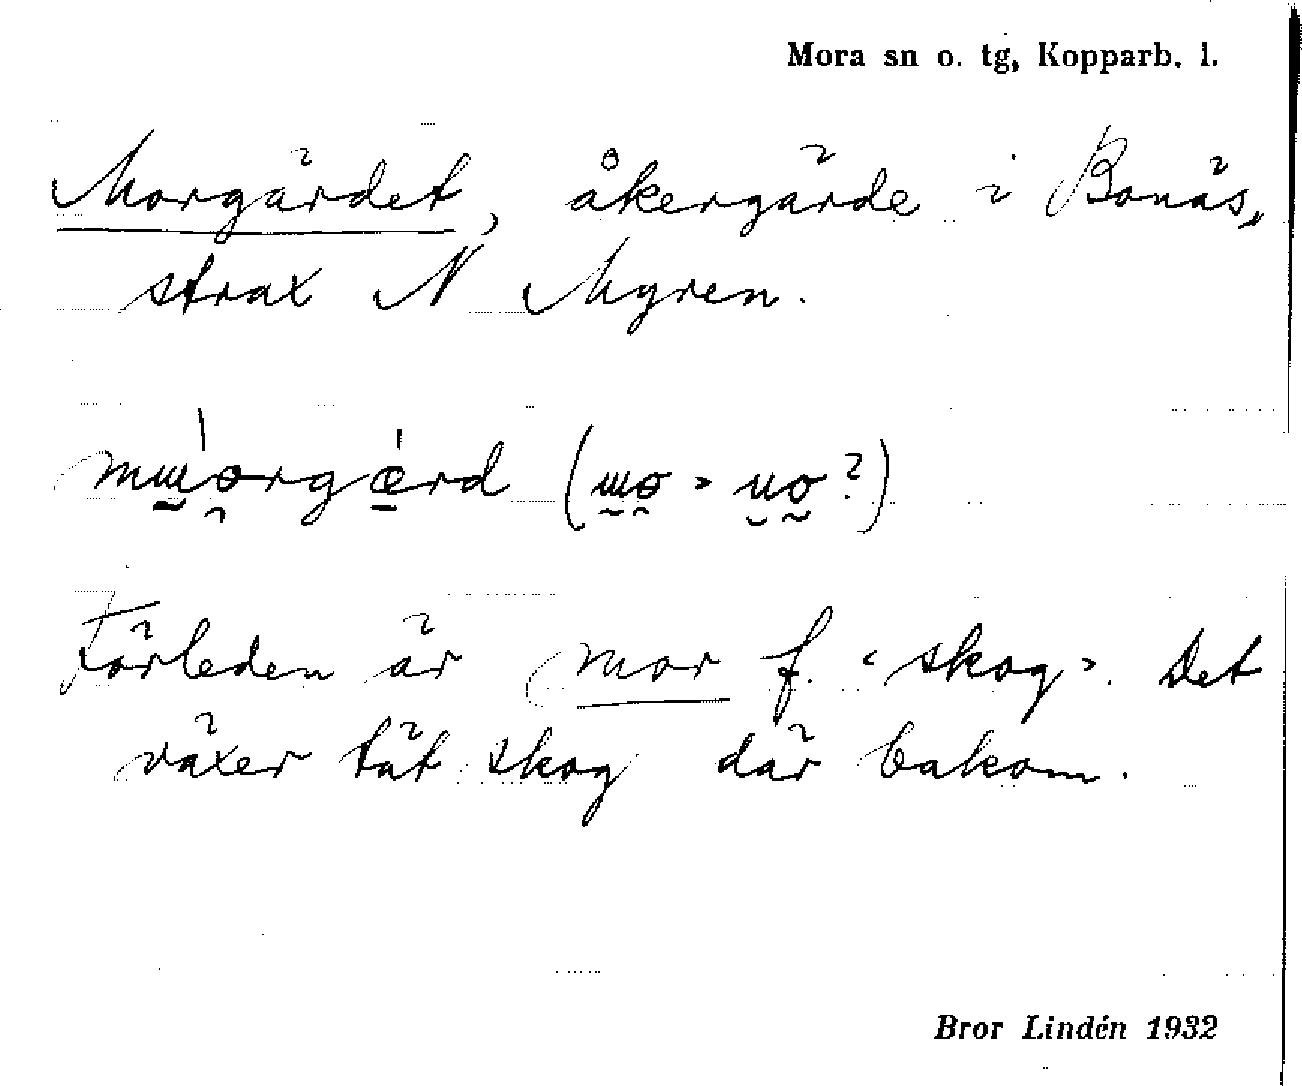 Mora sn o. tg, Kopparb. l.
Morgärdet, åkergärde i Bonäs,
strax N Myren.
mɯ̰́o̯rgǽ̠rd (ɯ̰o̯ > u̯o̰?)
Förleden är mor f. ‹skog›. Det
växer tät skog där bakom.
Bror Lindén 1932